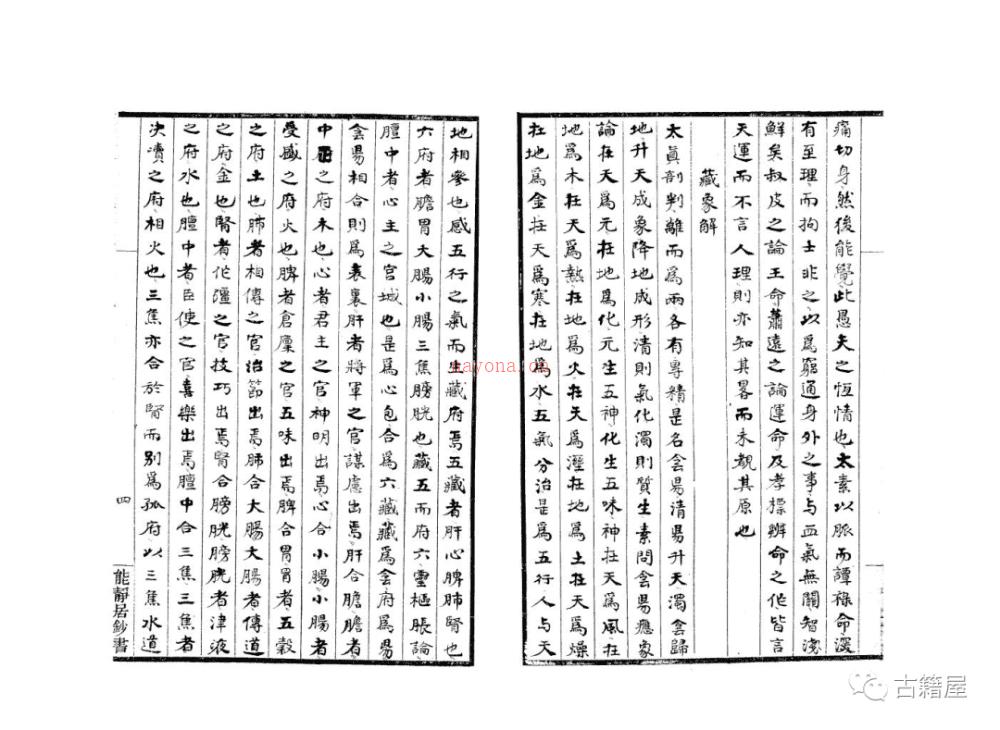 痛切身然後能覺此愚夫之恆情也太素以脈而譚祿命深
有至理而拘士非之以爲窮通身外之事与血氣無關智淺
鮮矣叔皮之論王命蕭遠之論運命及孝標辨命之作皆言
天運而不言人理則亦知其畧而未覩其原也
藏象解
太眞剖判離而爲兩各有專精是名侌昜清昜升天濁侌歸
地升天成象降地成形清則氣化濁則質生素問侌昜應象
論在天爲元在地爲化元生五神化生五味神在天爲風在
地爲木在天爲熱在地爲火在天爲溼在地爲土在天爲燥
在地爲金在天爲寒在地爲水五氣分治是爲五行人与天
地相參也感五行之氣而生藏府焉五藏者肝心脾肺腎也
六府者膽胃大腸小腸三焦膀胱也藏五而府六靈樞脹論
膻中者心主之宮城也是爲心包合爲六藏藏爲侌府爲昜
侌昜相合則爲表裏肝者將軍之官謀慮出焉肝合膽膽者
中正之府木也心者君主之官神明出焉心合小腸小腸者
受盛之府火也脾者倉廩之官五味出焉脾合胃胃者五穀
之府土也肺者相傅之官治節出焉肺合大腸大腸者傳道
之府金也腎者作彊之官技巧出焉腎合膀胱膀胱者津液
之府水也膻中者臣使之官喜樂出焉膻中合三焦三焦者
決瀆之府相火也三焦亦合於腎而别爲孤府以三焦水道
四
能靜居鈔書
nayona.cn
古籍屋